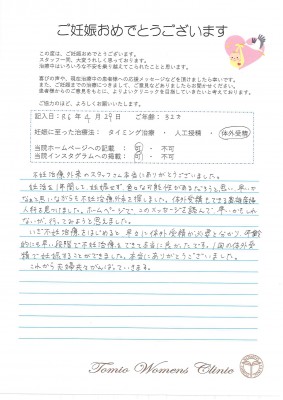 ご妊娠おめでとうございます
この度は、ご妊娠おめでとうございます。
スタッフ一同、大変うれしく思っております。
治療中はいろいろな不安を乗り越えてこられたことと思います。
喜びの声や、現在治療中の患者様への応援メッセージなどを頂けましたら幸いです。
また、ご妊娠までの治療につきまして、ご意見などありましたらお聞かせください。
患者様からのご意見をもとに、よりよいクリニックを目指していきたいと考えております。
ご協力のほど、よろしくお願いいたします。
記入日：R6年4月29日 ご年齢：32才
妊娠に至った治療法： タイミング治療 ・ 人工授精 ・ 体外受精
当院ホームページへの記載 ： 可 ・ 不可
当院インスタグラムへの掲載 ： 可 ・ 不可
不妊治療外来のスタッフさん本当にありがとうございました。
妊活を1年間して妊娠せず、
なと思いながらも不妊治療外来を探しました。体外受精もできる
人科を見つけました。ホームページでこのメッセージを読んで、早いかもしれ
ないが、行ってみようと思えました。
いざ不妊治療をはじめると、早々に体外受精が必要と分かり、年齢
的にも早い段階で不妊治療をできて本当に良かったです。1回の体外受
精で妊娠することができました。本当にありがとうございました。
これから夫婦共々がんばっていきます。
Tomio Womens Clinic